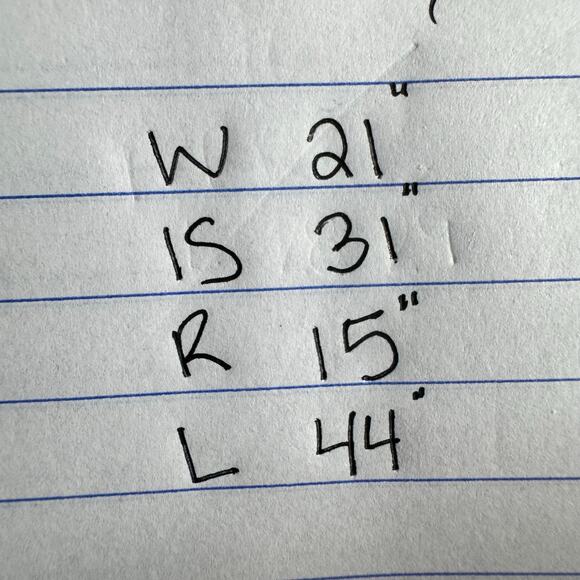 W 21"
IS 31"
R 15"
L 44"